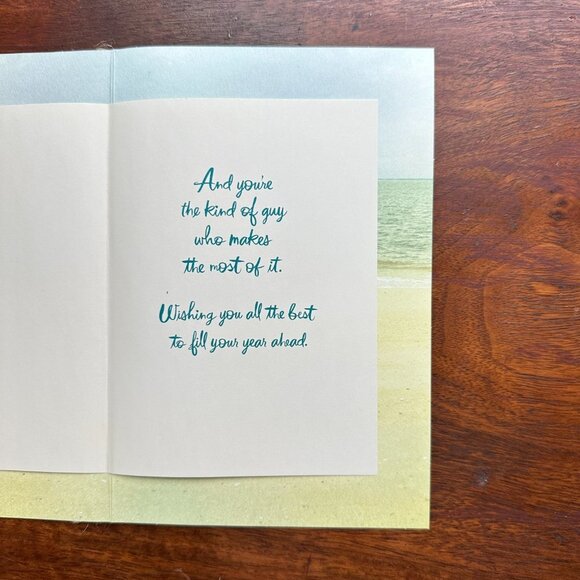 And you're
the kind of guy
who makes
the most of it.
Wishing you all the best
to fill your year ahead.